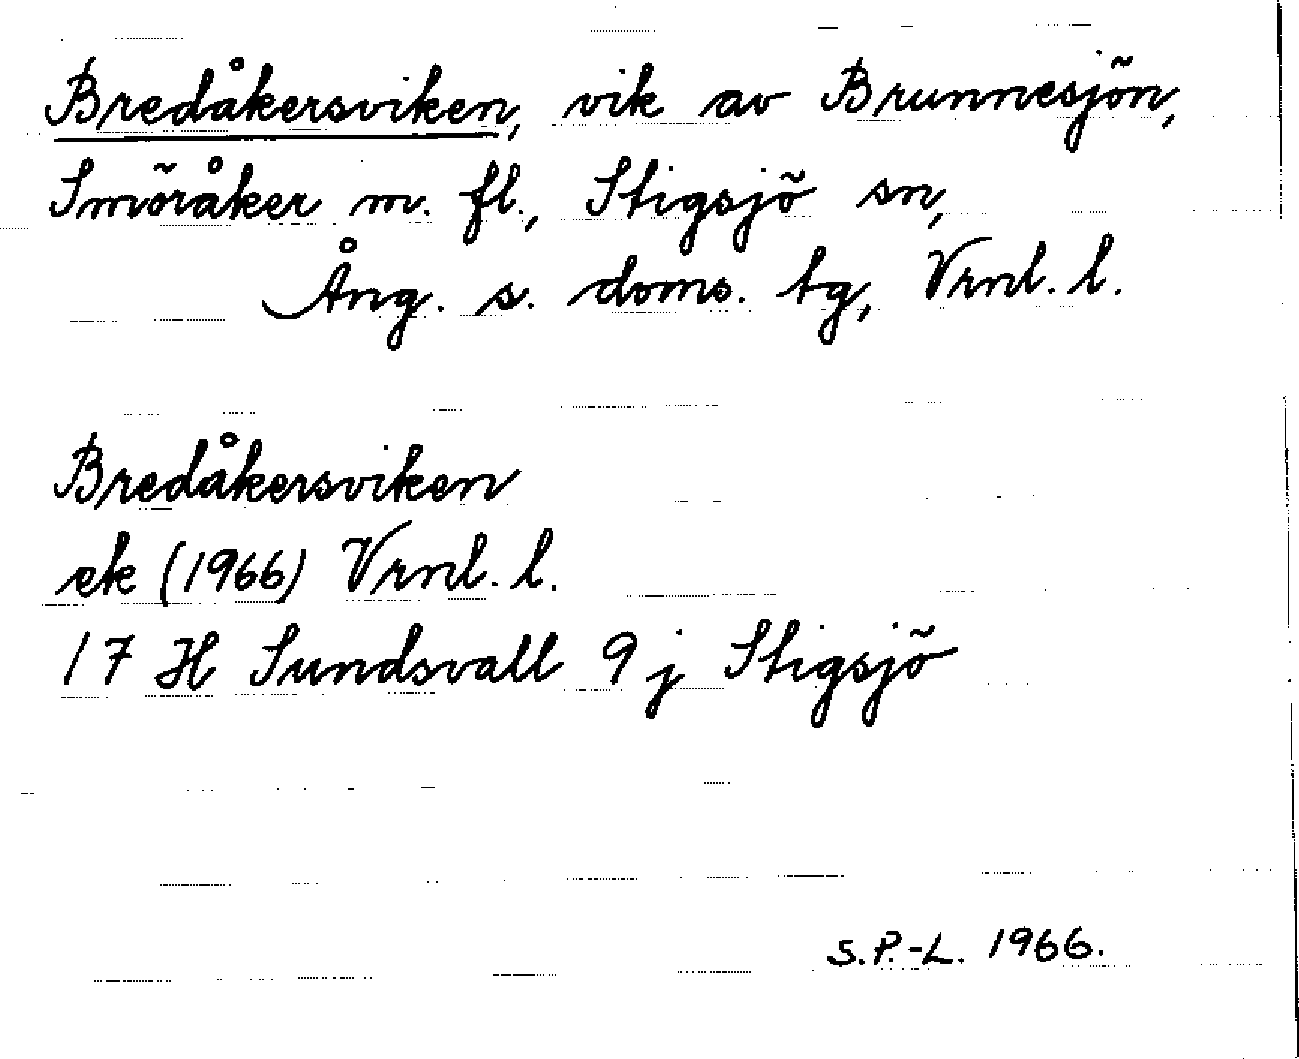 Bredåkersviken, vik av Brunnesjön,
Smöråker m. fl., Stigsjö sn,
Ång. s. doms. tg, Vrnl. l.
Bredåkersviken
ek (1966) Vrnl. l.
17 H Sundsvall 9 j Stigsjö
S. P.-L. 1966.